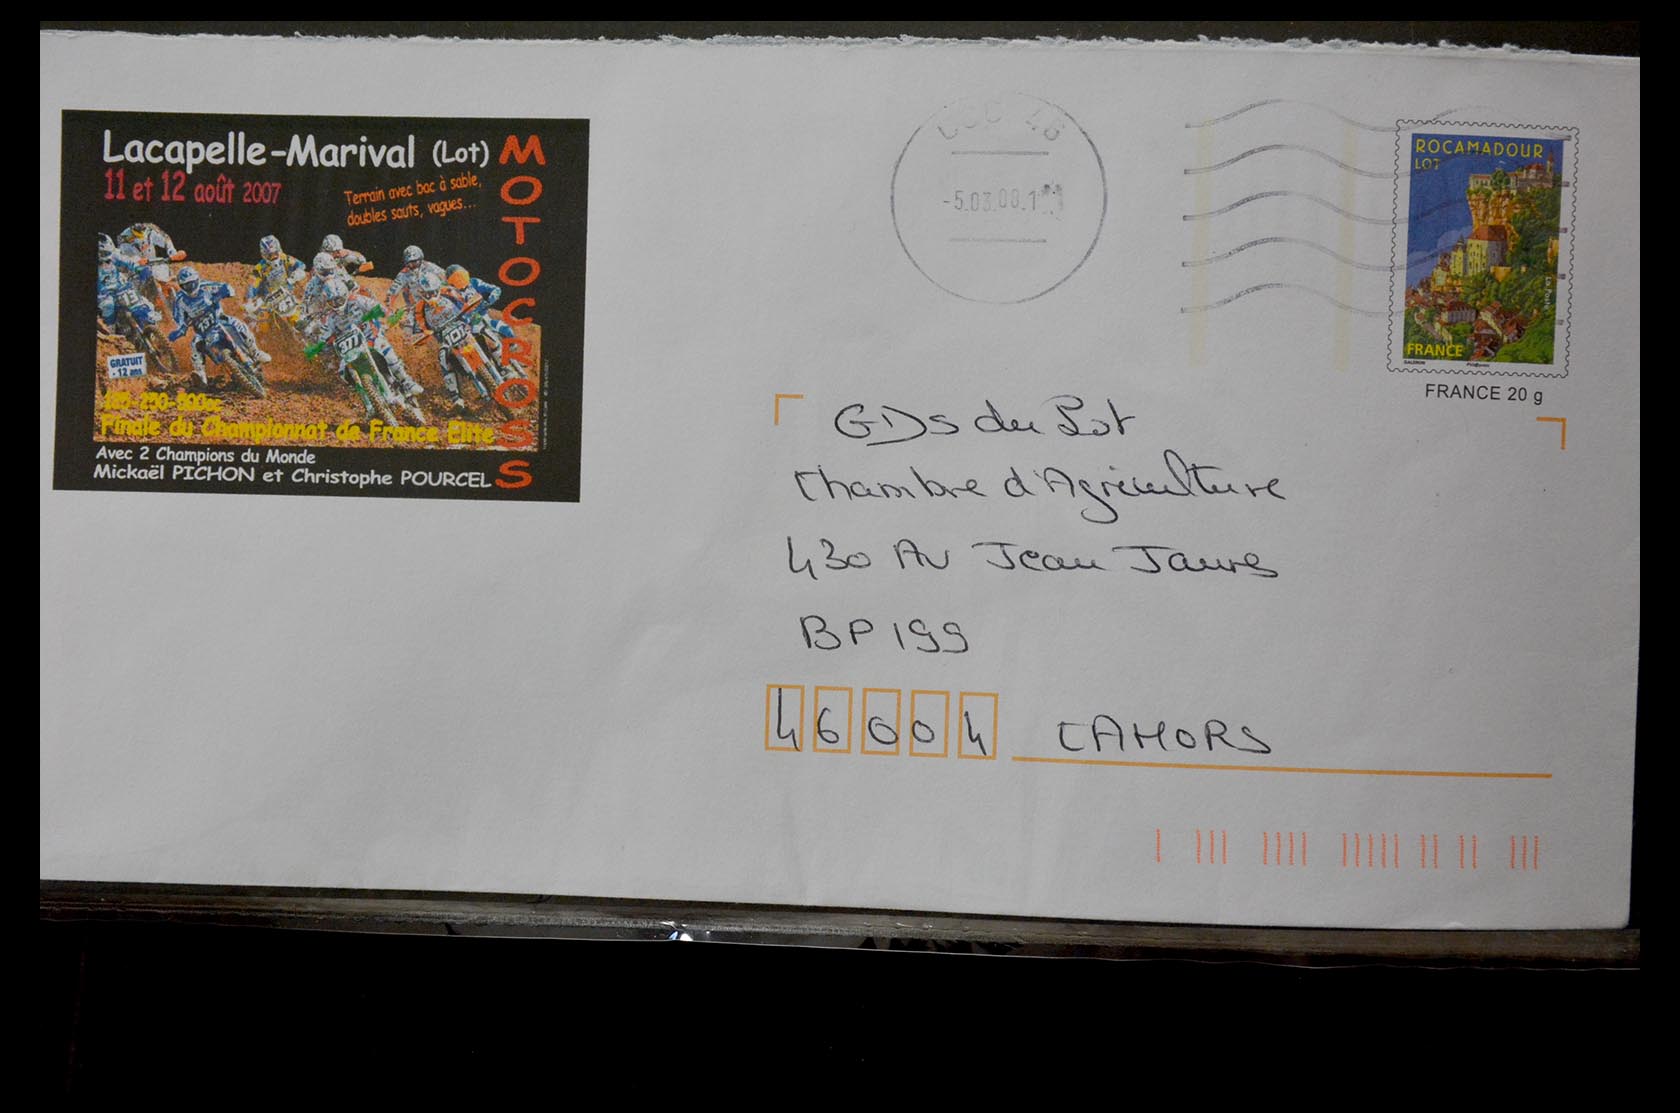 Lacapelle-Marival (Lot)
MOTOCROSS
11 et 12 août 2007
Terrain avec bac à sable,
doubles sauts, vagues...
137
377
101
GRATUIT
- 12 ans
Finale du Championnat de France Elite
Avec 2 Champions du Monde
Mickaël PICHON et Christophe POURCEL
-5.03.00.1
ROCAMADOUR
LOT
La Poste
FRANCE
FRANCE 20 g
GDS du Lot
Chambre d'Agriculture
430 Av Jean Jaures
BP 199
46004 CAHORS